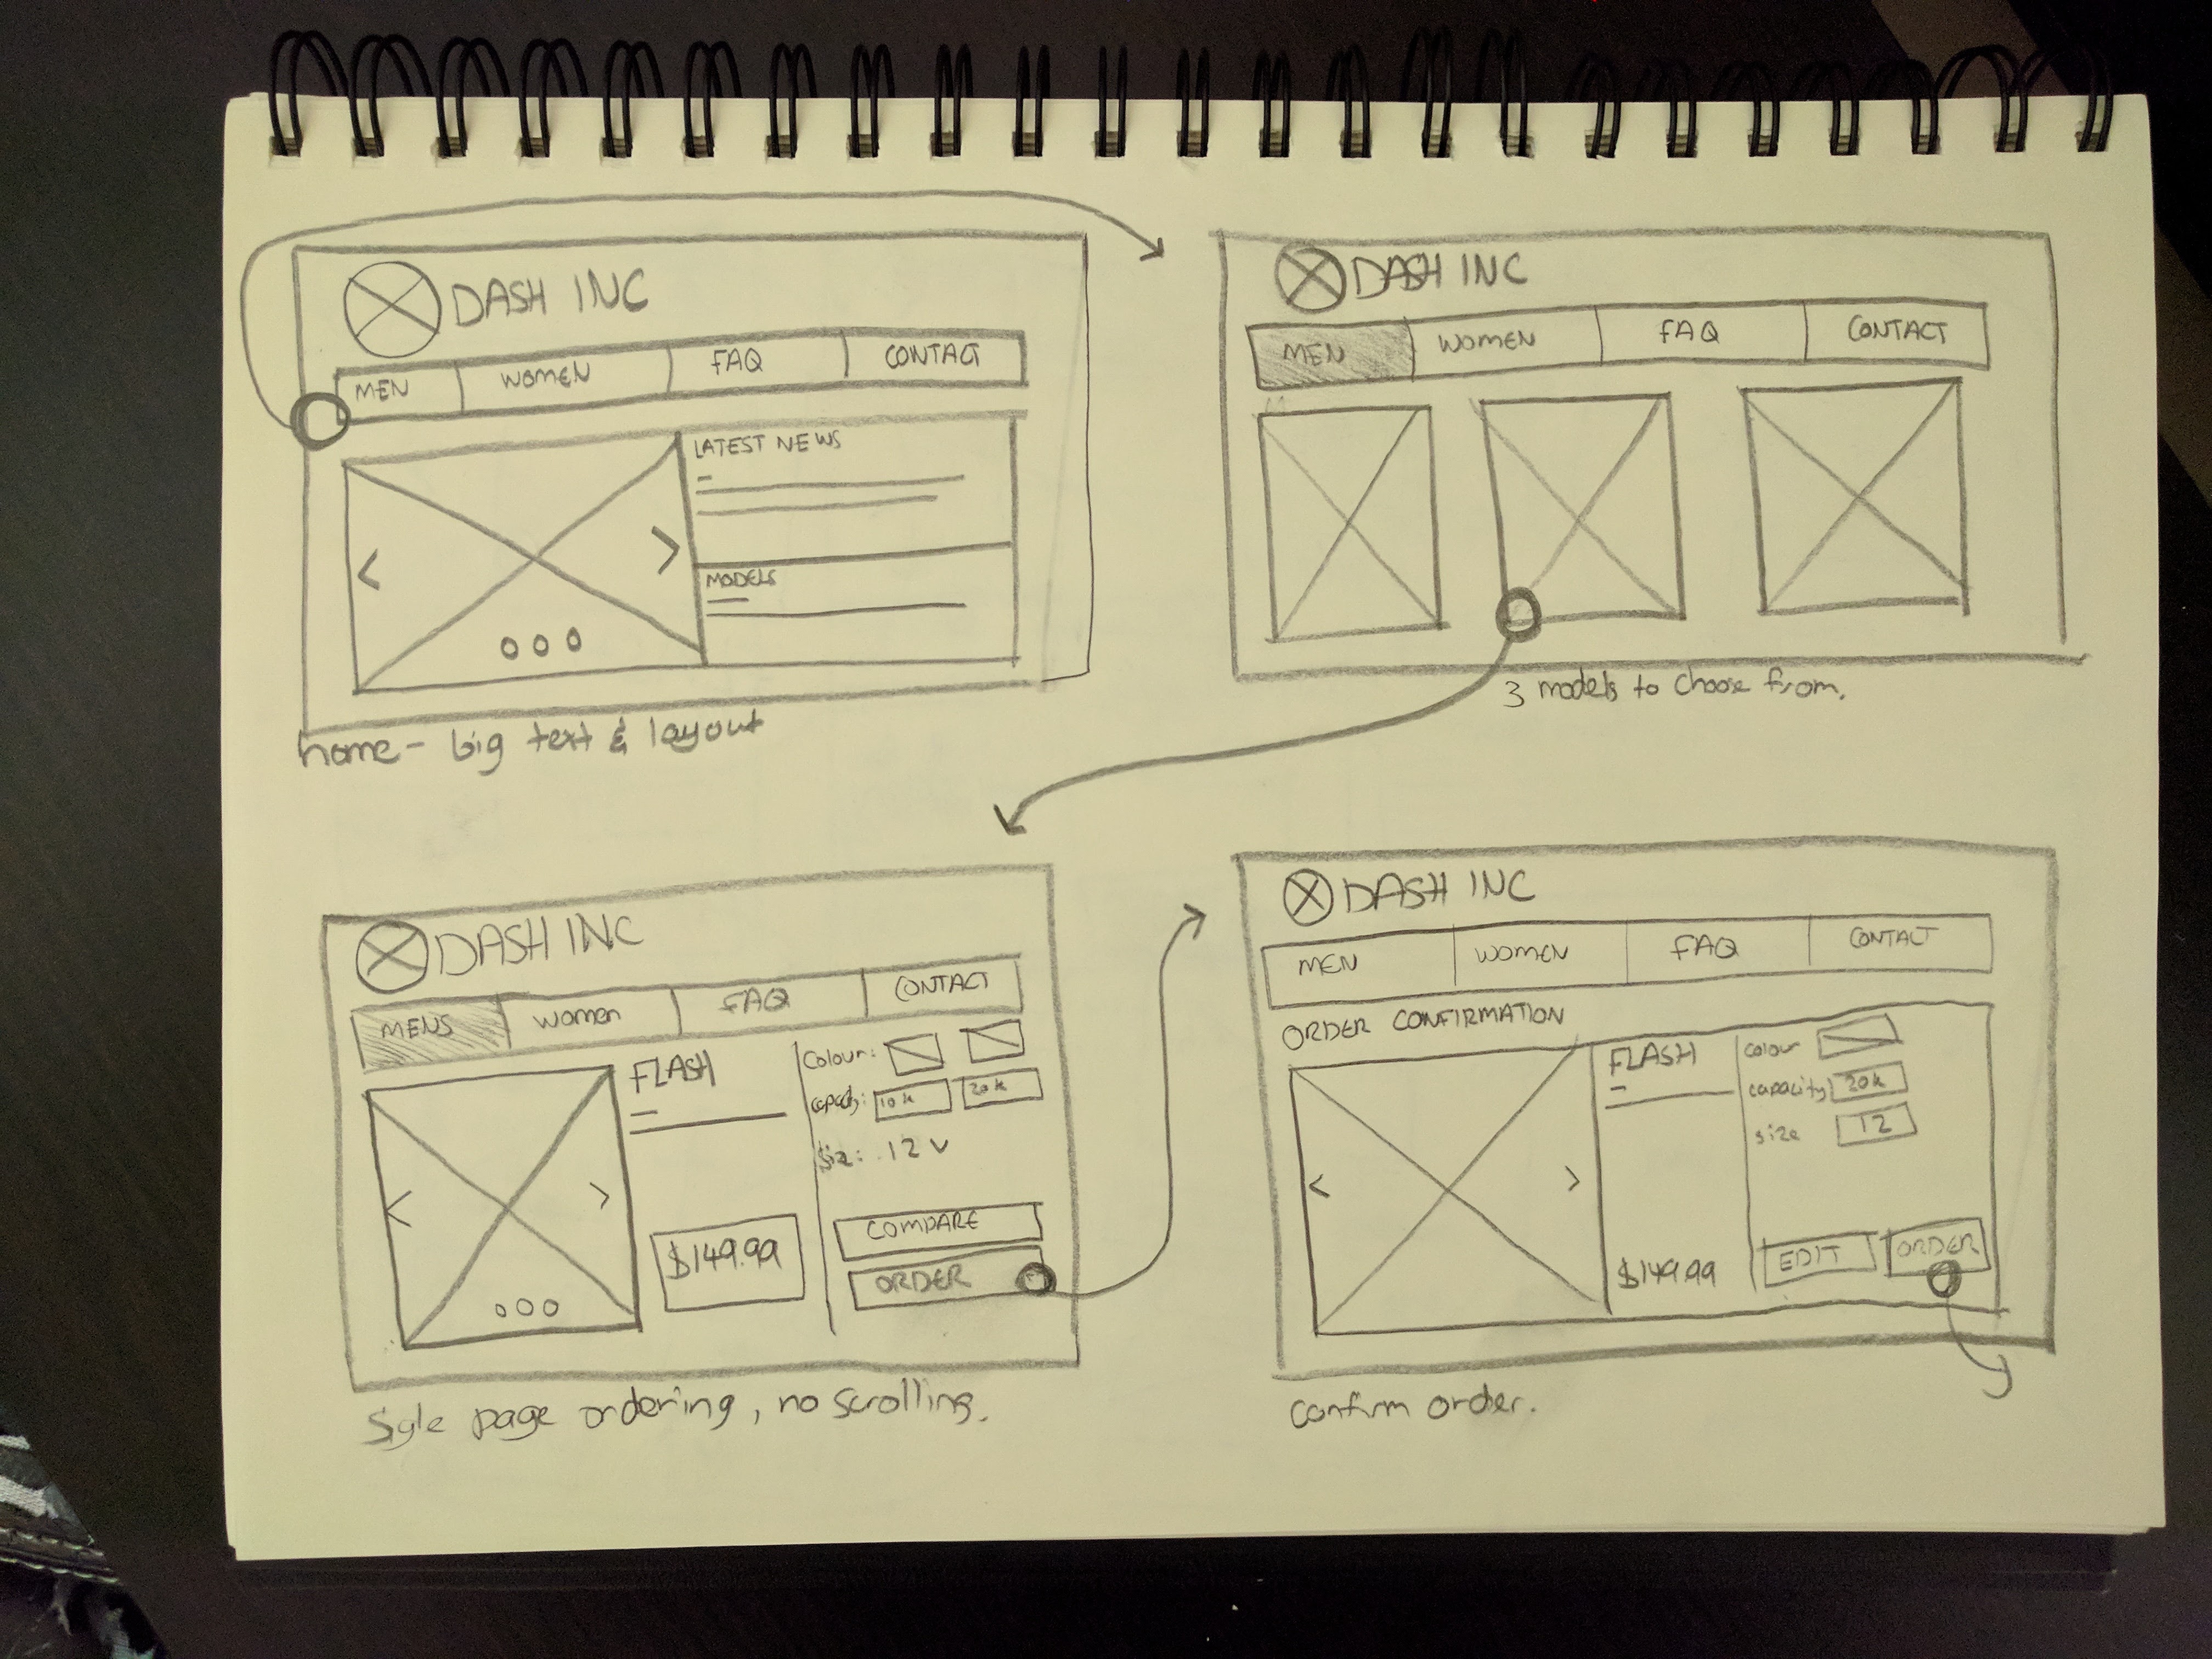 DASH INC
MEN WOMEN FAQ CONTACT
LATEST NEWS
MODELS
home - big text & layout
DASH INC
MEN WOMEN FAQ CONTACT
3 models to choose from.
DASH INC
MENS women FAQ CONTACT
FLASH
$149.99
Colour:
10k 20k
12 v
COMPARE
ORDER
page ordering, no scrolling.
DASH INC
MEN WOMEN FAQ CONTACT
ORDER CONFIRMATION
FLASH
$149.99
colour
capacity 20k
size 12
EDIT ORDER
confirm order.